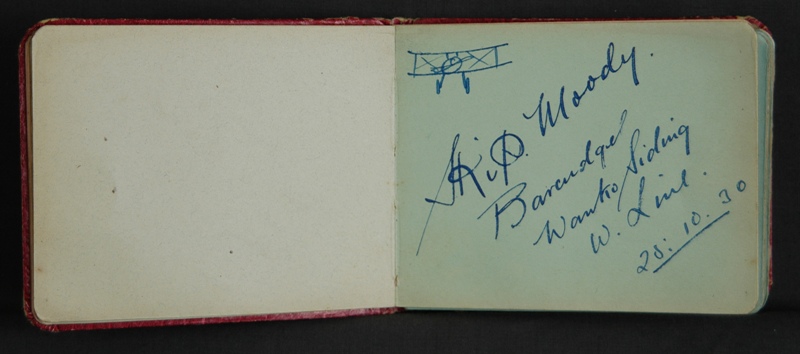 Skip. Moody.
Barcudgel
Wanko Siding
W. Line.
28.10.30